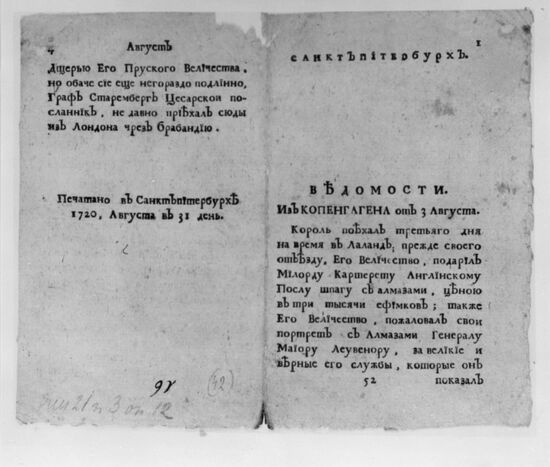 4 Августъ
Дщерью Его Пруского Велічества,
но обаче сіе еще негораздо подлінно,
Графъ Старембергъ Цесарской по-
сланнікъ, не давно пріѣхалъ сюды
изъ Лондона чрезъ брабандію.
Печатано въ Санктъпітербурхѣ
1720, Августа въ 31 день.
92
(32)
1
САНКТЪПІТЕРБУРХЪ.
ВѢДОМОСТИ.
Изъ КОПЕНГАГЕНА отъ 3 Августа.
Король поѣхалъ третьяго дня
на время въ Лаландъ, прежде своего
отъѣзду, Его Велічество, подарілъ
Мілорду Картерету Англінскому
Послу шпагу съ алмазами, цѣною
въ три тысячи ефімковъ; также
Его Велічество, пожаловалъ свои
портретъ съ Алмазами Генералу
Маіору Леувенору, за велікіе и
вѣрные его службы, которые онъ
52 показалъ